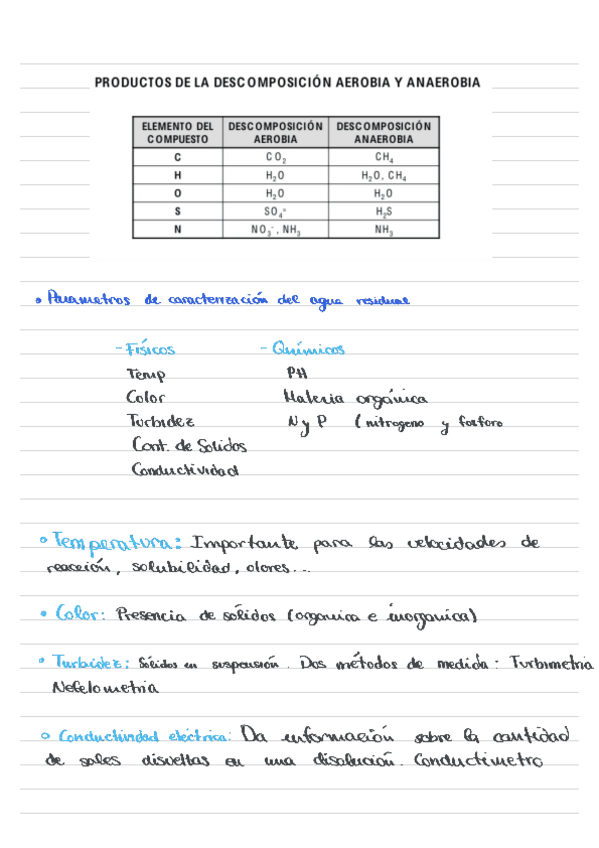 PRODUCTOS DE LA DESCOMPOSICIÓN AEROBIA Y ANAEROBIA
ELEMENTO DEL COMPUESTO DESCOMPOSICIÓN AEROBIA DESCOMPOSICIÓN ANAEROBIA
C CO₂ CH₄
H H₂O H₂O, CH₄
O H₂O H₂O
S SO₄⁼ H₂S
N NO₃⁻, NH₃ NH₃
• Parametros de caracterización del agua residual
- Físicos - Químicos
Temp PH
Color Materia orgánica
Turbidez N y P (nitrogeno y fosforo
Cont. de Solidos
Conductividad
• Temperatura: Importante para las velocidades de
reacción, solubilidad, olores...
• Color: Presencia de sólidos (organica e inorganica)
• Turbidez: Sólidos en suspensión. Dos métodos de medida: Turbimetria
Nefelometria
• Conductividad eléctrica: Da información sobre la cantidad
de sales disueltas en una disolución. Conductimetro